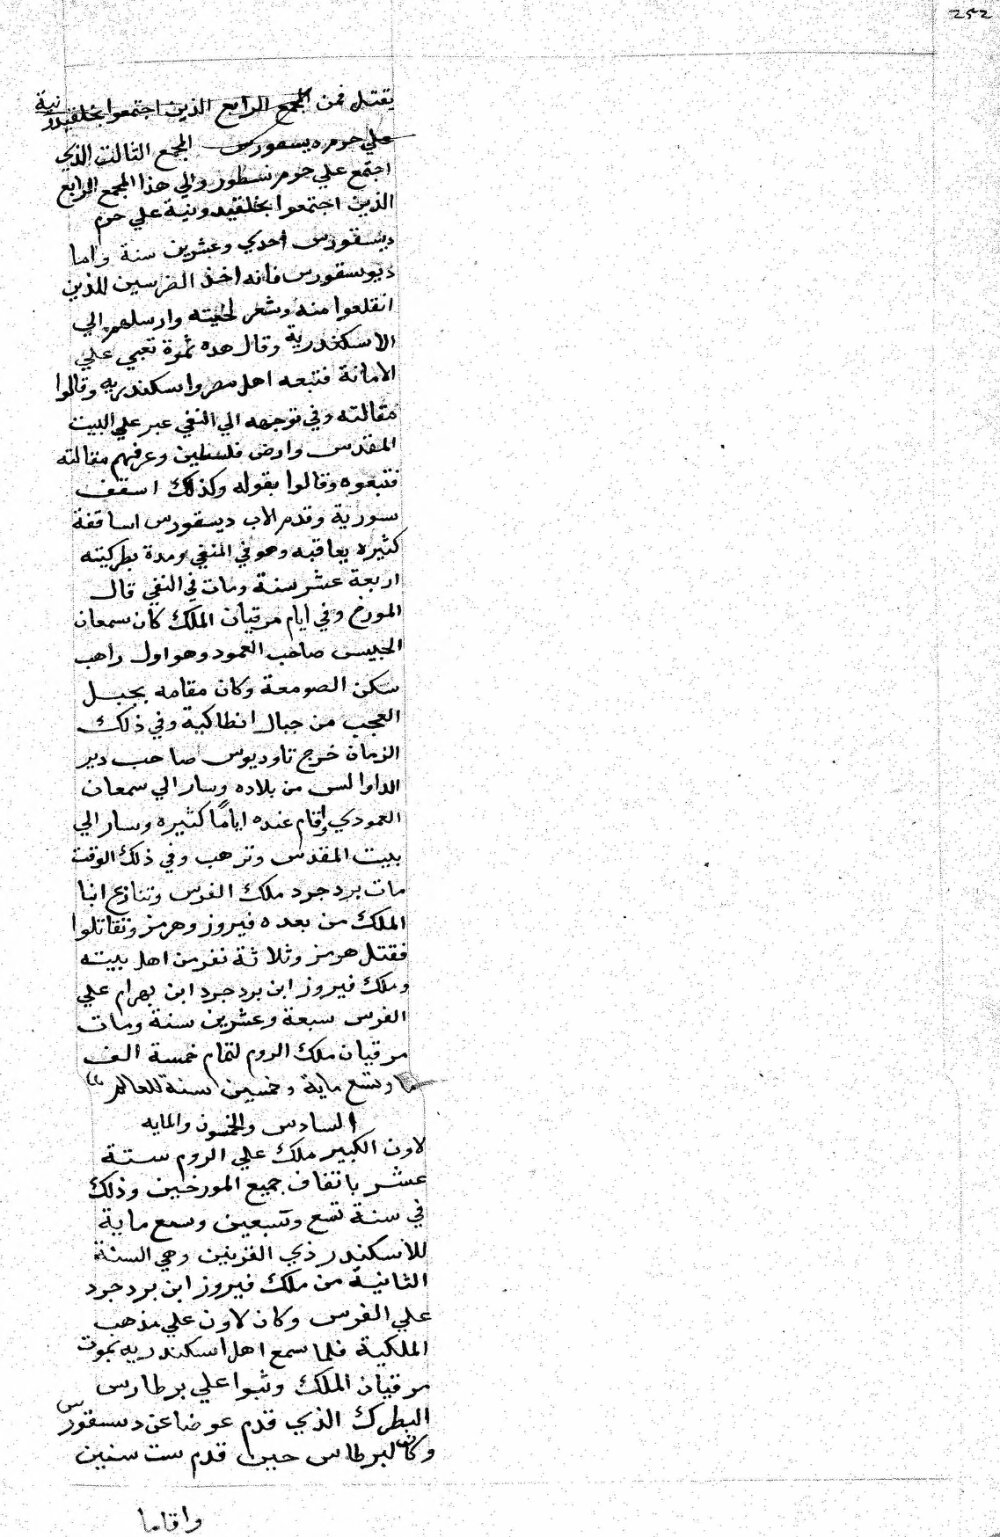 ٢٥٢
يقتل فمن المجمع الرابع الذين اجتمعوا بخلقيدونية
علي حرم ديسقورس المجمع الثالث الذي
اجتمع علي حرم نسطور والي هذا المجمع الرابع
الذين اجتمعوا بخلقيدونية علي حرم
ديسقورس احدي وعشرين سنة واما
ديوسقورس فانه اخذ الضرسين الذين
انقلعوا منه وشعر لحيته وارسلهم الي
الاسكندرية وقال هده ثمرة تعبي علي
الامانة فتبعه اهل مصر واسكندريه وقالوا
مقالته وفي توجهه الي النفي عبر علي البيت
المقدس وارض فلسطين وعرفهم مقالته
فتبعوه وقالوا بقوله وكذلك اسقف
سورية وقدم الاب ديسقورس اساقفة
كثيره يعاقبه وهو في المنفي ومدة بطركيته
اربعة عشر سنة ومات في النفي قال
المورخ وفي ايام مرقيان الملك كان سمعان
الحبيس صاحب العمود وهو اول راهب
سكن الصومعة وكان مقامه بجبل
العجب من جبال انطاكية وفي ذلك
الزمان خرج تاوديوس صاحب دير
الداوالس من بلاده وسار الي سمعان
العمودي واقام عنده اياماً كثيره وسار الي
بيت المقدس وترهب وفي ذلك الوقت
مات بردجرد ملك الفرس وتنازع ابنا
الملك من بعده فيروز وهرمز وتقاتلوا
فقتل هرمز وثلاثة نفر من اهل بيته
وملك فيروز ابن بردجرد ابن بهرام علي
الفرس سبعة وعشرين سنة ومات
مرقيان ملك الروم لتمام خمسة الف
وتسع ماية وخمسين سنة للعالم
السادس والخمسون والمايه
لاون الكبير ملك علي الروم ستة
عشر باتفاق جميع المورخين وذلك
في سنة تسع وتسعين وسبع ماية
للاسكندر ذي القرنين وهي السنة
الثانية من ملك فيروز ابن بردجرد
علي الفرس وكان لاون علي مذهب
الملكية فلما سمع اهل اسكندريه بموت
مرقيان الملك وثبوا علي برطارس
البطرك الذي قدم عوضا عن دسقورس
وكان لبرطاس حين قدم ست سنين
واقاما